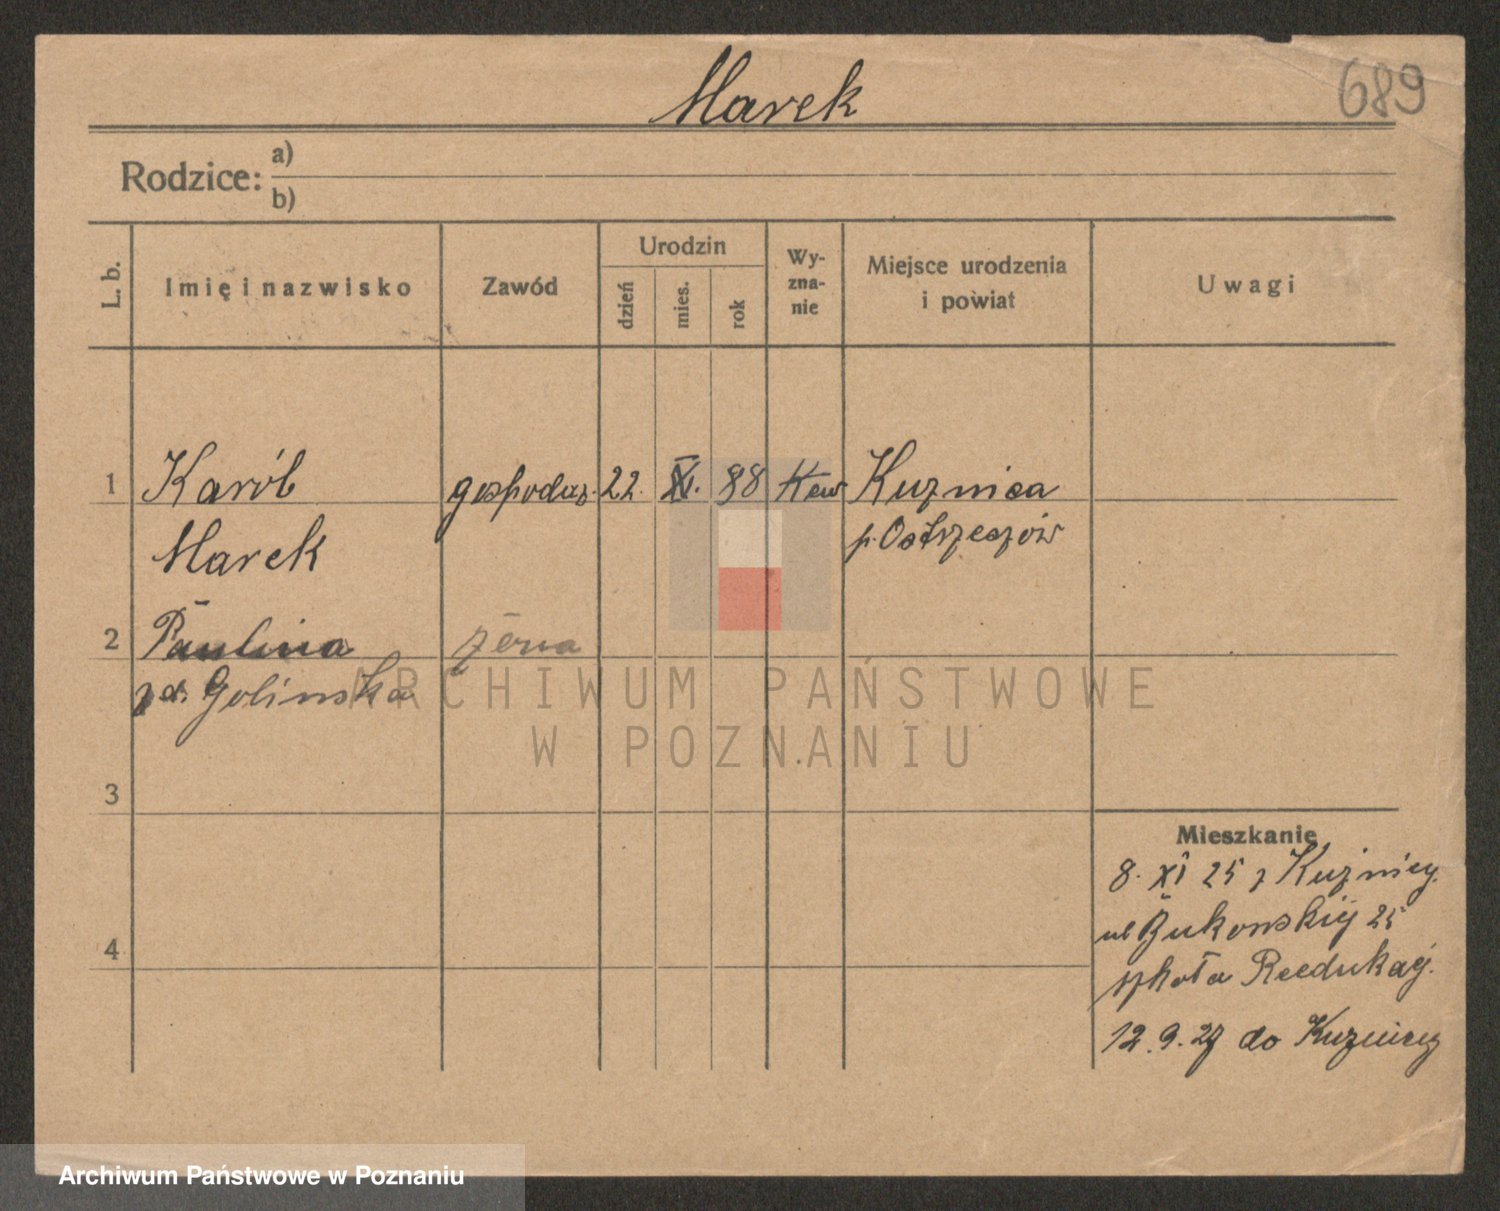 Marek
689
Rodzice: a)
b)
L. b.
Imię i nazwisko
Zawód
Urodzin
dzień
mies.
rok
Wy-
zna-
nie
Miejsce urodzenia
i powiat
Uwagi
1 Karól gospodarz. 22. XI. 88 Kuznica
Marek p. Ostrzeszów
2 Paulina żona
zd. Golinska
ARCHIWUM PAŃSTWOWE
W POZNANIU
3
Mieszkanie
8. XI 25 z Kuźnicy.
ul Bukowskiej 25
szkoła Reedukacj.
4
12. 9. 27 do Kuznicy
Archiwum Państwowe w Poznaniu